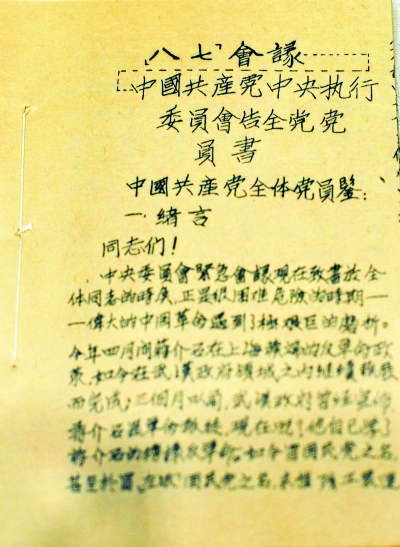 八七會議
中國共產党中央执行
委員會告全党党
員書
中國共產党全体党員鑒：
一 緒言
同志们！
中央委員會緊急會議現在致書於全
体同志的時候，正是很困难危險的時期——
一偉大的中国革命遇到了極艰巨的磨折。
今年四月间蔣介石在上海
策，如今在武漢政府領域之內继續發展
而完成；三個月以前，武漢政府
蔣介石是革命叛徒，现在呢？他自己学了
蔣介石的 反革命。如今国民党之名，
国民党之名，